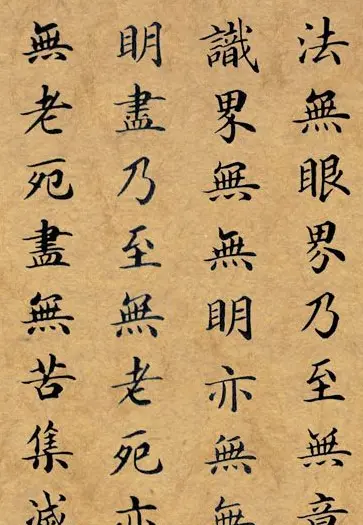 法無眼界乃至無意
識界無無明亦無無
明盡乃至無老死亦
無老死盡無苦集滅